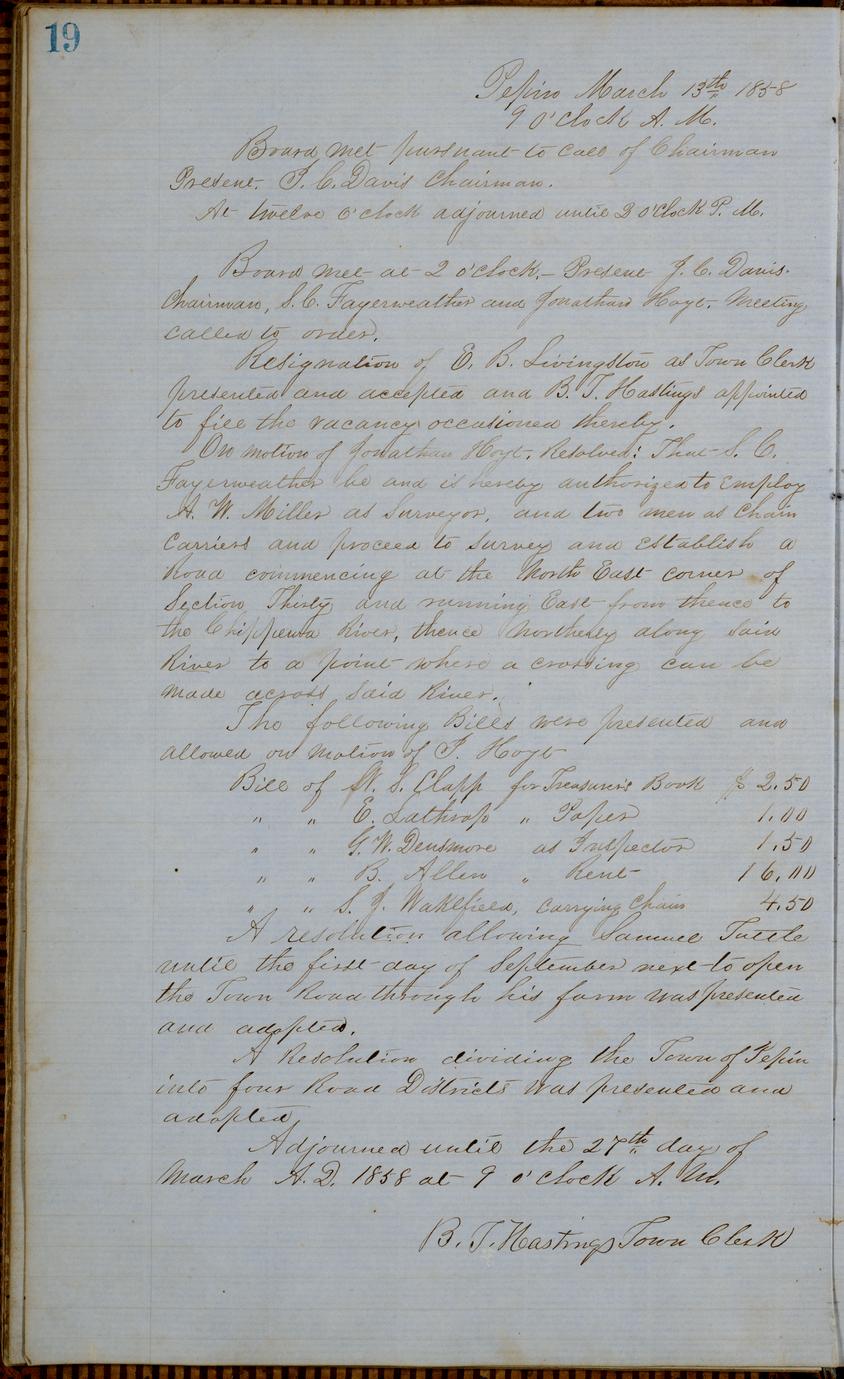 19
Pepin March 13th 1858
9 O'Clock A. M.
Board met pursuant to call of Chairman
Present. J. C. Davis Chairman.
At twelve O'clock adjourned until 2 O'Clock P. M.
Board met at 2 O'clock. Present J. C. Davis.
Chairman, S. C. Fayerweather and Jonathan Hoyt. Meeting
called to order.
Resignation of E. B. Livingston as Town Clerk
presented and accepted and B. T. Hastings appointed
to fill the vacancy occasioned thereby.
On motion of Jonathan Hoyt. Resolved: That S. C.
Fayerweather be and is hereby authorized to Employ
A. W. Miller as Surveyor, and two men as Chain
Carriers and proceed to Survey and Establish a
Road commencing at the North East corner of
Section Thirty and running East from thence to
the Chippewa River, thence Northerly along said
River to a point where a crossing can be
made across said River.
The following Bills were presented and
allowed on motion of J. Hoyt
Bill of S. Clapp for Treasurer's Book $ 2.50
" " E. Lathrop " Paper 1.00
" " G. W. Densmore as Inspector 1.50
" " B. Allen " Rent 16.00
" " S. J. Wakefield, carrying Chain 4.50
A resolution allowing Samuel Tuttle
until the first day of September next to open
the Town Road through his farm was presented
and adopted.
A Resolution dividing the Town of Pepin
into four Road Districts was presented and
adopted
Adjourned until the 27th day of
March A. D. 1858 at 9 o'clock A. M.
B. T. Hastings Town Clerk